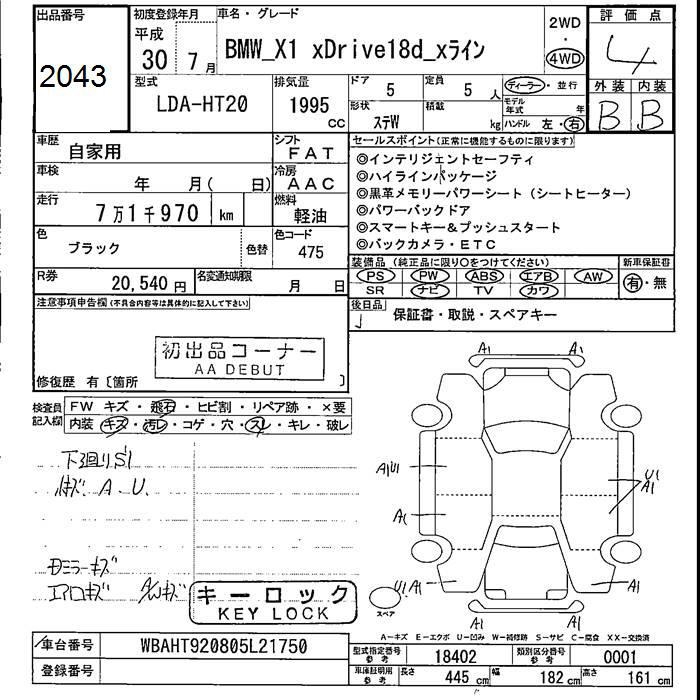 出品番号
2043
初度登録年月
平成
30年 7月
車名・グレード
BMW_X1 xDrive18d_xライン
2WD
・
4WD
評価点
4
外装 内装
B B
型式
LDA-HT20
排気量
1995
CC
ドア
5
定員
5人
形状
ステW
積載
kg
ディーラー・並行
モデル年式 年
ハンドル 左・右
車歴
自家用
シフト
FAT
車検
年 月( 日)
冷房
AAC
走行
7万1千970 km
燃料
軽油
色
ブラック
色替
色コード
475
R券
20,540円
名変通知期限
月 日
セールスポイント(正常に機能するものに限ります)
◎インテリジェントセーフティ
◎ハイラインパッケージ
◎黒革メモリーパワーシート(シートヒーター)
◎パワーバックドア
◎スマートキー&プッシュスタート
◎バックカメラ・ETC
装備品(純正品に限り○をつけてください)
PS PW ABS エアB AW
SR ナビ TV カワ
新車保証書
有・無
後日品
保証書・取説・スペアキー
注意事項申告欄(不具合内容等は具体的に記入して下さい)
初出品コーナー
AA DEBUT
修復歴 有〔箇所 〕
検査員記入欄
FW キズ・飛石・ヒビ割・リペア跡・×要
内装 キズ・汚レ・コゲ・穴・スレ・キレ・破レ
下廻りS1
A.U.
ミラーキズ
エアロキズ A/Wキズ
キーロック
KEY LOCK
A1 A1
A1U1
U1
A1
A1
U1 A1
A1
スペア
A1
A1
A－キズ E－エクボ U－凹み W－補修跡 S－サビ C－腐食 XX－交換済
車台番号
WBAHT920805L21750
登録番号
型式指定番号
参考
18402
類別区分番号
参考
0001
車庫証明用
参考
長さ 445cm 幅 182cm 高さ 161cm